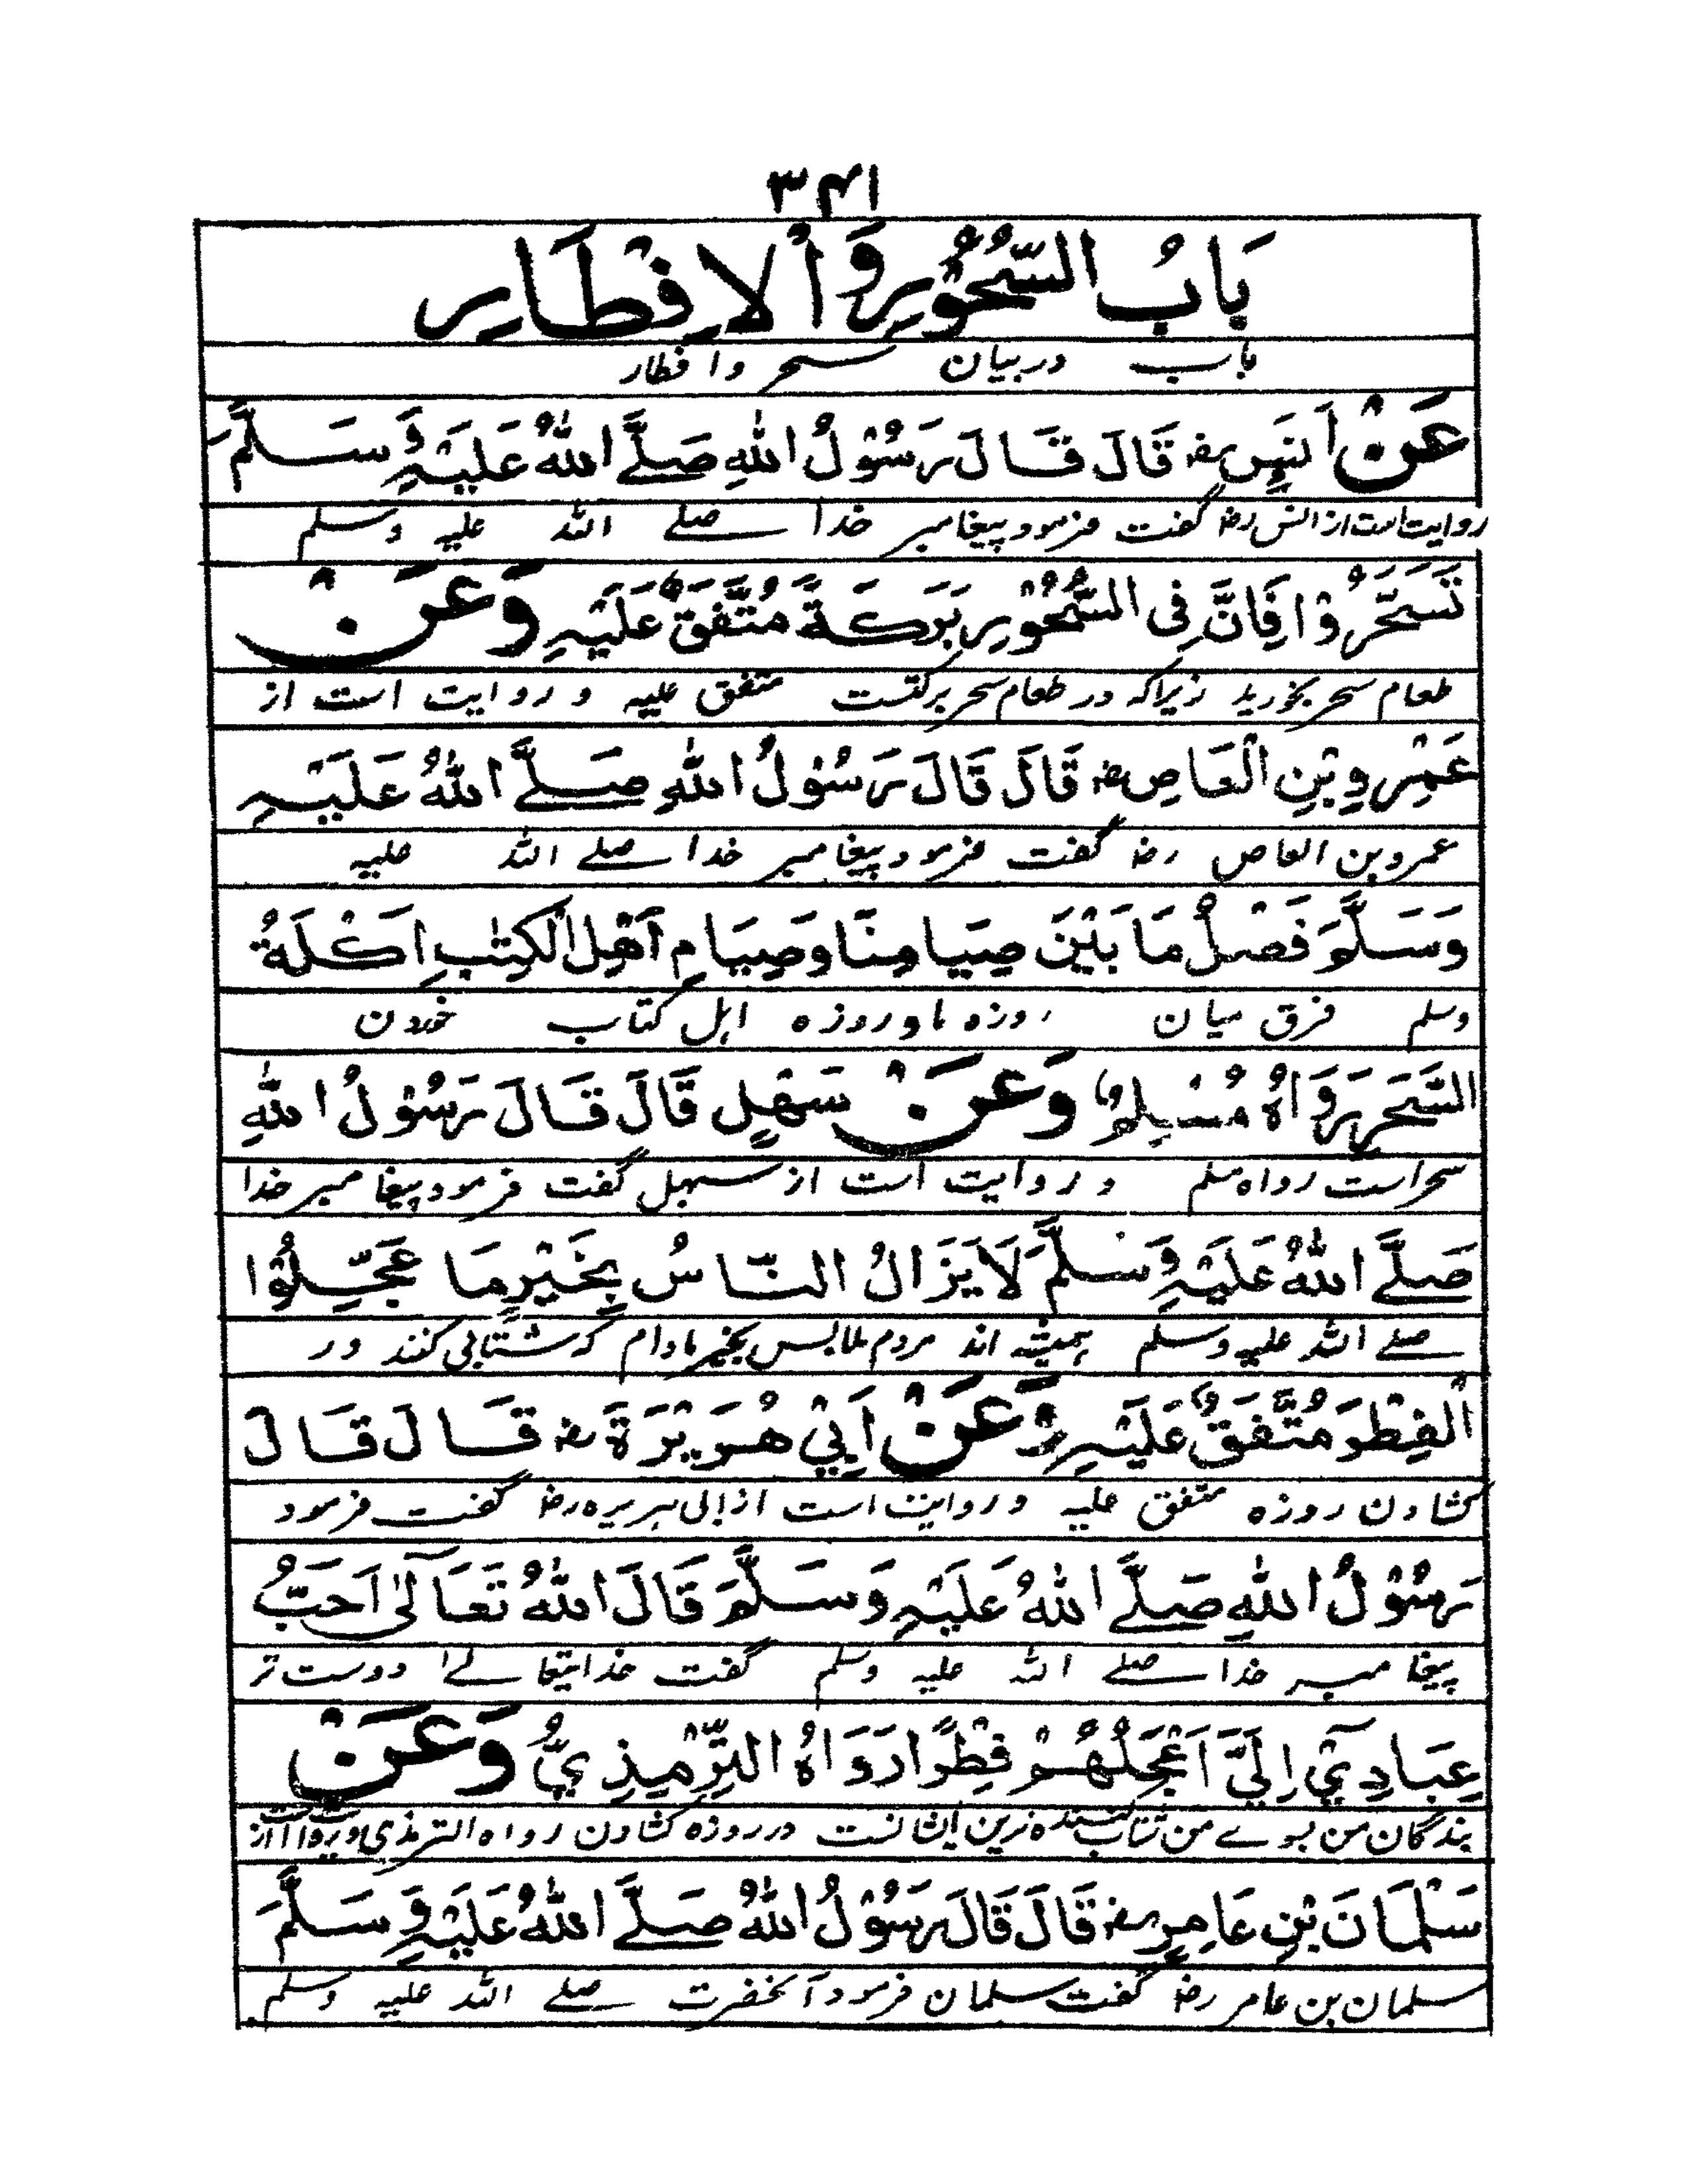 ۳۴۱
بَابُ السُّحُوْرِ وَالْاِفْطَارِ
باب دربیان سحر وافطار
عَنْ اَنَسٍ رض قَالَ قَالَ رَسُوْلُ اللهِ صَلَّے اللهُ عَلَيْهِ وَسَلَّمَ
روایت است از انس رض گفت فرمود پیغامبر خدا صلے الله علیه وسلم
تَسَحَّرُوْا فَاِنَّ فِی السُّحُوْرِ بَرَكَةً مُتَّفَقٌ عَلَيْهِ وَعَنْ
طعام سحر بخورید زیراکه در طعام سحر برکتست متفق علیه و روایت است از
عَمْرِو بْنِ الْعَاصِ رض قَالَ قَالَ رَسُوْلُ اللهِ صَلَّے اللهُ عَلَيْهِ
عمرو بن العاص رض گفت فرمود پیغامبر خدا صلے الله علیه
وَسَلَّمَ فَصْلُ مَا بَيْنَ صِيَامِنَا وَصِيَامِ اَهْلِ الْكِتٰبِ اَكْلَةُ
وسلم فرق میان روزه ما و روزه اہل کتاب خوردن
السَّحَرِ رَوَاهُ مُسْلِمٌ وَعَنْ سَهْلٍ قَالَ قَالَ رَسُوْلُ اللهِ
سحر است رواه مسلم و روایت است از سهل گفت فرمود پیغامبر خدا
صَلَّے اللهُ عَلَيْهِ وَسَلَّمَ لَا يَزَالُ النَّاسُ بِخَيْرٍ مَا عَجَّلُوْا
صلے الله علیه وسلم ہمیشه اند مردم ملابس بخیر مادام که شتابی کنند در
الْفِطْرَ مُتَّفَقٌ عَلَيْهِ وَعَنْ اَبِيْ هُرَيْرَةَ رض قَالَ قَالَ
کشادن روزه متفق علیه و روایت است از ابی ہریره رض گفت فرمود
رَسُوْلُ اللهِ صَلَّے اللهُ عَلَيْهِ وَسَلَّمَ قَالَ اللهُ تَعَالٰی اَحَبُّ
پیغامبر خدا صلے الله علیه وسلم گفت خدایتعالے دوست تر
عِبَادِيْ اِلَيَّ اَعْجَلُهُمْ فِطْرًا رَوَاهُ التِّرْمِذِيُّ وَعَنْ
بندگان من بسوے من شتاب کننده ترین ایشانست در روزه کشادن رواه الترمذی و روایت است از
سَلْمَانَ بْنِ عَامِرٍ رض قَالَ قَالَ رَسُوْلُ اللهُ صَلَّے اللهُ عَلَيْهِ وَسَلَّمَ
سلمان بن عامر رض گفت سلمان فرمود آنحضرت صلے الله علیه وسلم